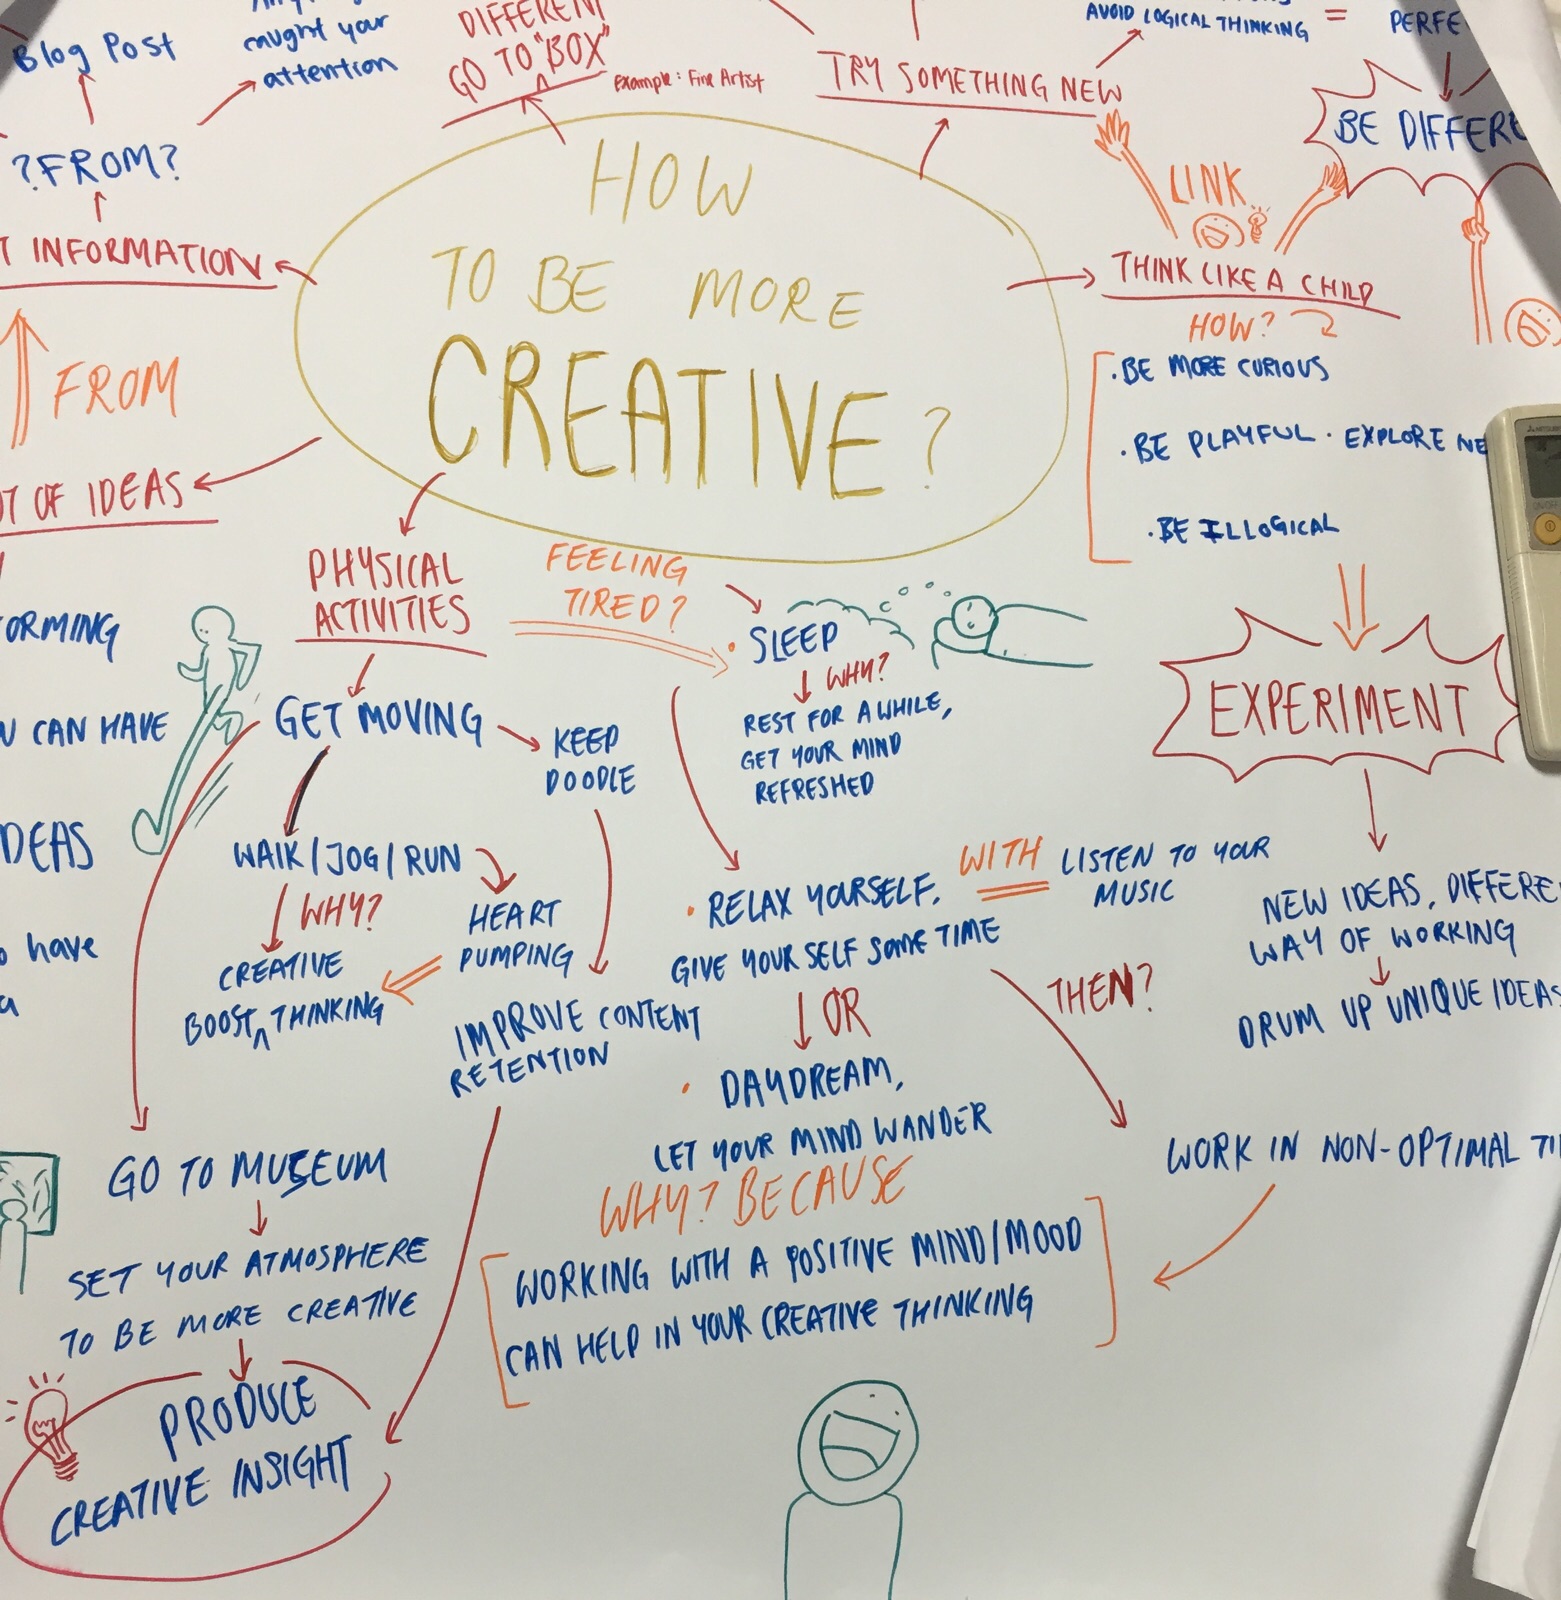 Blog Post
caught your
attention
?FROM?
T INFORMATION
FROM
OF IDEAS
ORMING
CAN HAVE
DEAS
have
DIFFERENT
GO TO "BOX"
Example: Fine Artist
TRY SOMETHING NEW
AVOID LOGICAL THINKING
=
PERFE
BE DIFFERE
HOW
TO BE MORE
CREATIVE?
LINK
THINK LIKE A CHILD
HOW?
·BE MORE CURIOUS
·BE PLAYFUL · EXPLORE NE
·BE ILLOGICAL
EXPERIMENT
NEW IDEAS, DIFFERE
WAY OF WORKING
DRUM UP UNIQUE IDEAS
PHYSICAL
ACTIVITIES
FEELING
TIRED?
· SLEEP
WHY?
REST FOR A WHILE,
GET YOUR MIND
REFRESHED
GET MOVING
KEEP
DOODLE
WALK/JOG/RUN
WHY?
HEART
PUMPING
CREATIVE
BOOST^THINKING
IMPROVE CONTENT
RETENTION
· RELAX YOURSELF.
WITH
LISTEN TO YOUR
MUSIC
GIVE YOUR SELF SOME TIME
OR
THEN?
· DAYDREAM,
LET YOUR MIND WANDER
WHY? BECAUSE
WORKING WITH A POSITIVE MIND/MOOD
CAN HELP IN YOUR CREATIVE THINKING
WORK IN NON-OPTIMAL TI
GO TO MUSEUM
SET YOUR ATMOSPHERE
TO BE MORE CREATIVE
PRODUCE
CREATIVE INSIGHT